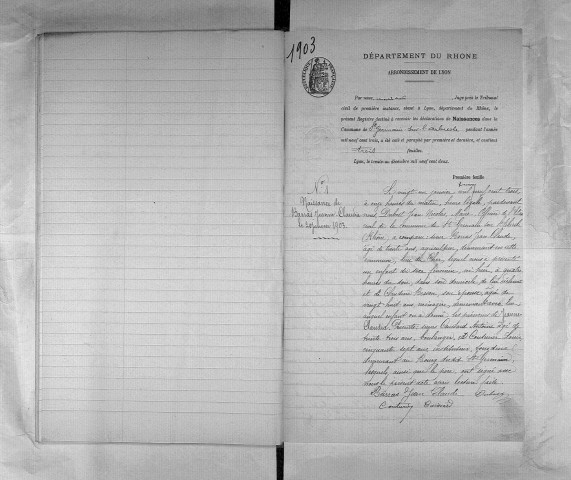 1903
DÉPARTEMENT DU RHONE
ARRONDISSEMENT DE LYON
Par nous, Juge près le Tribunal
civil de première instance, séant à Lyon, département du Rhône, le
présent Registre destiné à recevoir les déclarations de Naissances dans la
Commune de St Germain sur l'Arbresle, pendant l'année
mil neuf cent trois, a été coté et paraphé par première et dernière, et contient
trois feuilles.
Lyon, le trente-un décembre mil neuf cent deux.
Première feuille
N° 1
Naissance de
Barras Jeanne Claudia
le 20 janvier 1903
Le vingt un janvier mil neuf cent trois
à onze heures du matin, heure légale, pardevant
nous Dubost Jean Nicolas, Maire, Officier de l'État
civil de la commune de St Germain sur l'Arbresle
(Rhône) a comparu sieur Barras Jean Claude,
âgé de trente ans, agriculteur, demeurant en cette
commune, lieu de, lequel nous a présenté
un enfant du sexe féminin, né hier, à quatre
heures du soir, dans son domicile, de lui déclarant
et de son épouse, âgée de
vingt huit ans, ménagère, demeurant avec lui
auquel enfant on a donné les prénoms de Jeanne
Claudia. Présents sieurs Antoine âgé de
trente trois ans, boulanger, et
cinquante sept ans, instituteur, tous deux
demeurant au Bourg dudit St Germain,
lesquels, ainsi que le père, ont signé avec
nous le présent acte après lecture faite
Barras Jean Claude Dubost